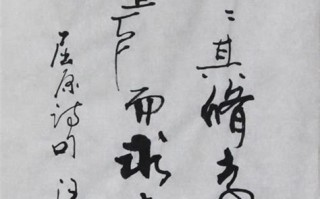 々其脩远
上下而求
屈原诗句